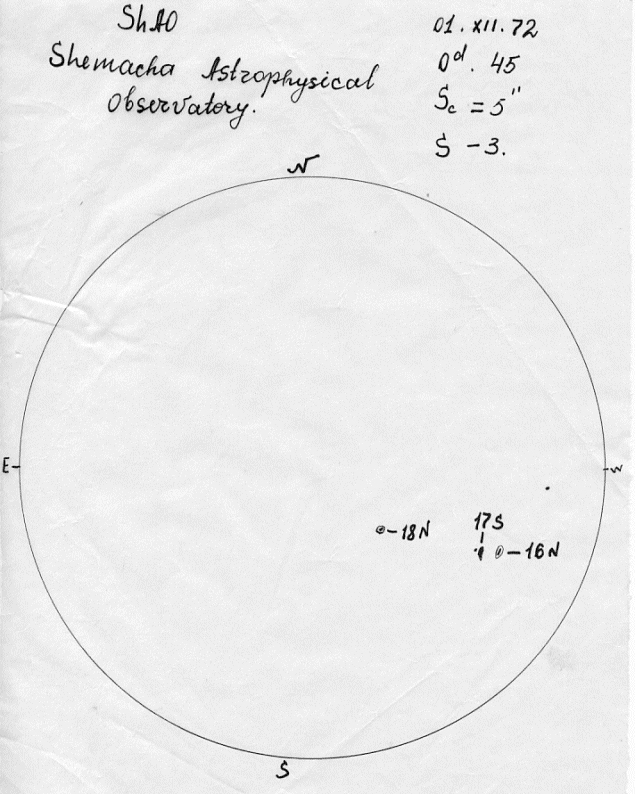 ShAO
Shemacha Astrophysical
Observatory.
01. XII. 72
0d. 45
Sc = 5"
S - 3.
N
E
W
-18N
17S
-16N
S